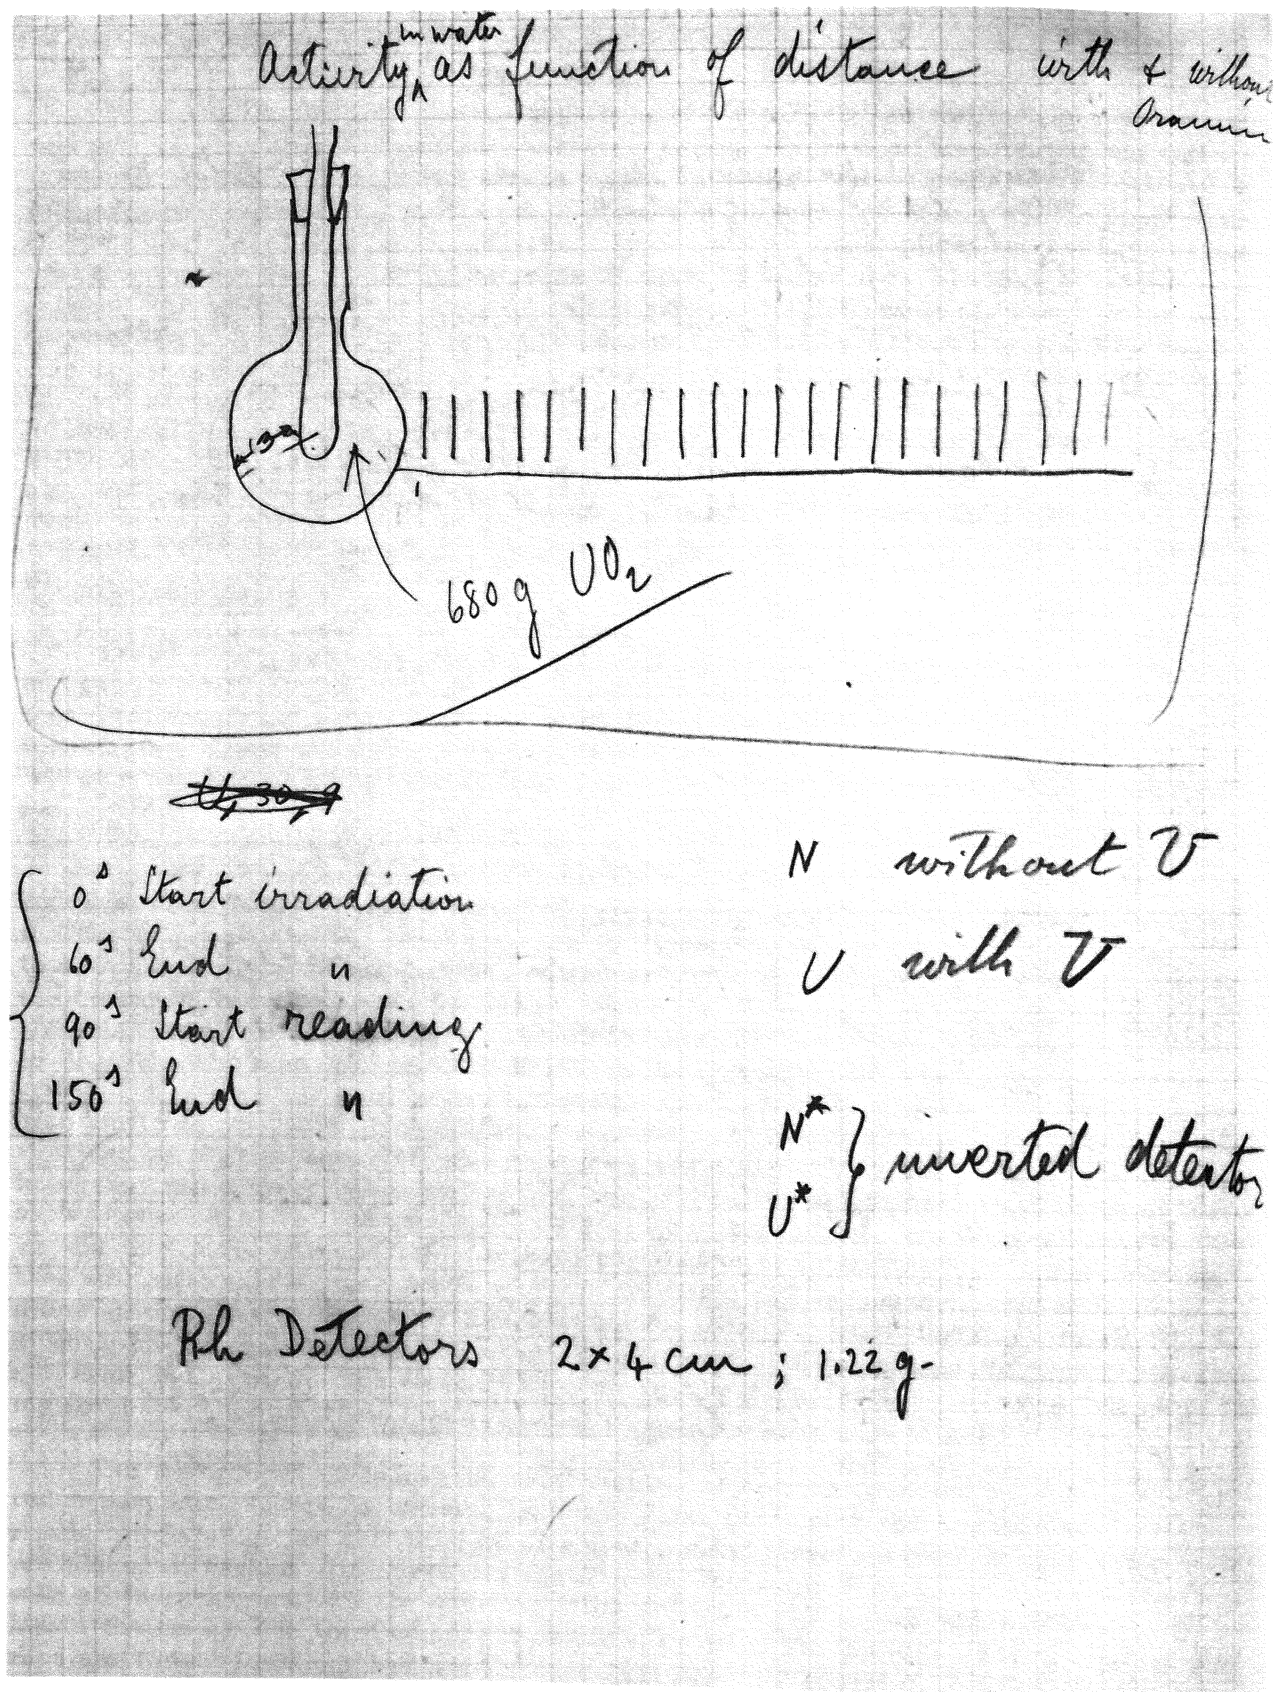 Activity in water as function of distance with & without
Uranium
13
680 g UO2
0s Start irradiation
60s End "
90s Start reading
150s End "
N without U
U with U
N*
U* } inverted detector
Rh Detectors 2 × 4 cm ; 1.22 g.